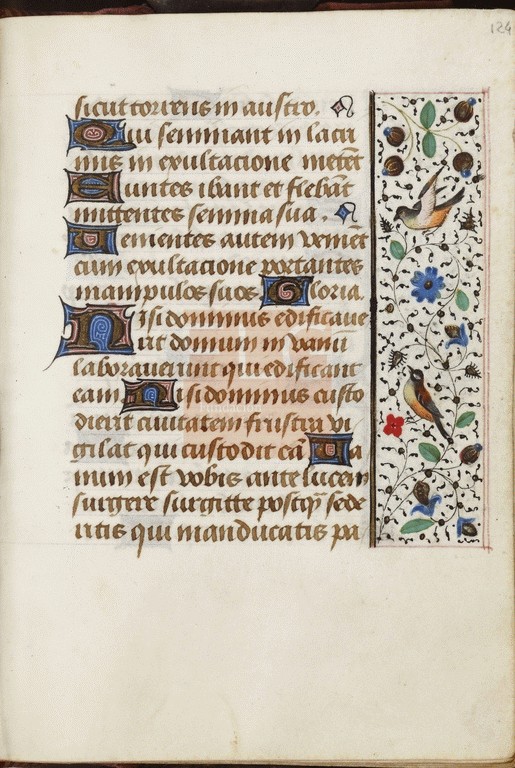 124
sicut torrens in austro.
Qui seminant in lacri
mis in exultacione metēt
Euntes ibant et flebāt
mittentes semina sua.
Uenientes autem veniēt
cum exultacione portantes
manipulos suos Gloria.
Nisi dominus edificaue
rit domum in vanū
laborauerunt qui edificant
eam. Nisi dominus custo
dierit ciuitatem frustra vi
gilat qui custodit eā Ua
num est vobis ante lucem
surgere surgitte postq̄ sede
ritis qui manducatis pa